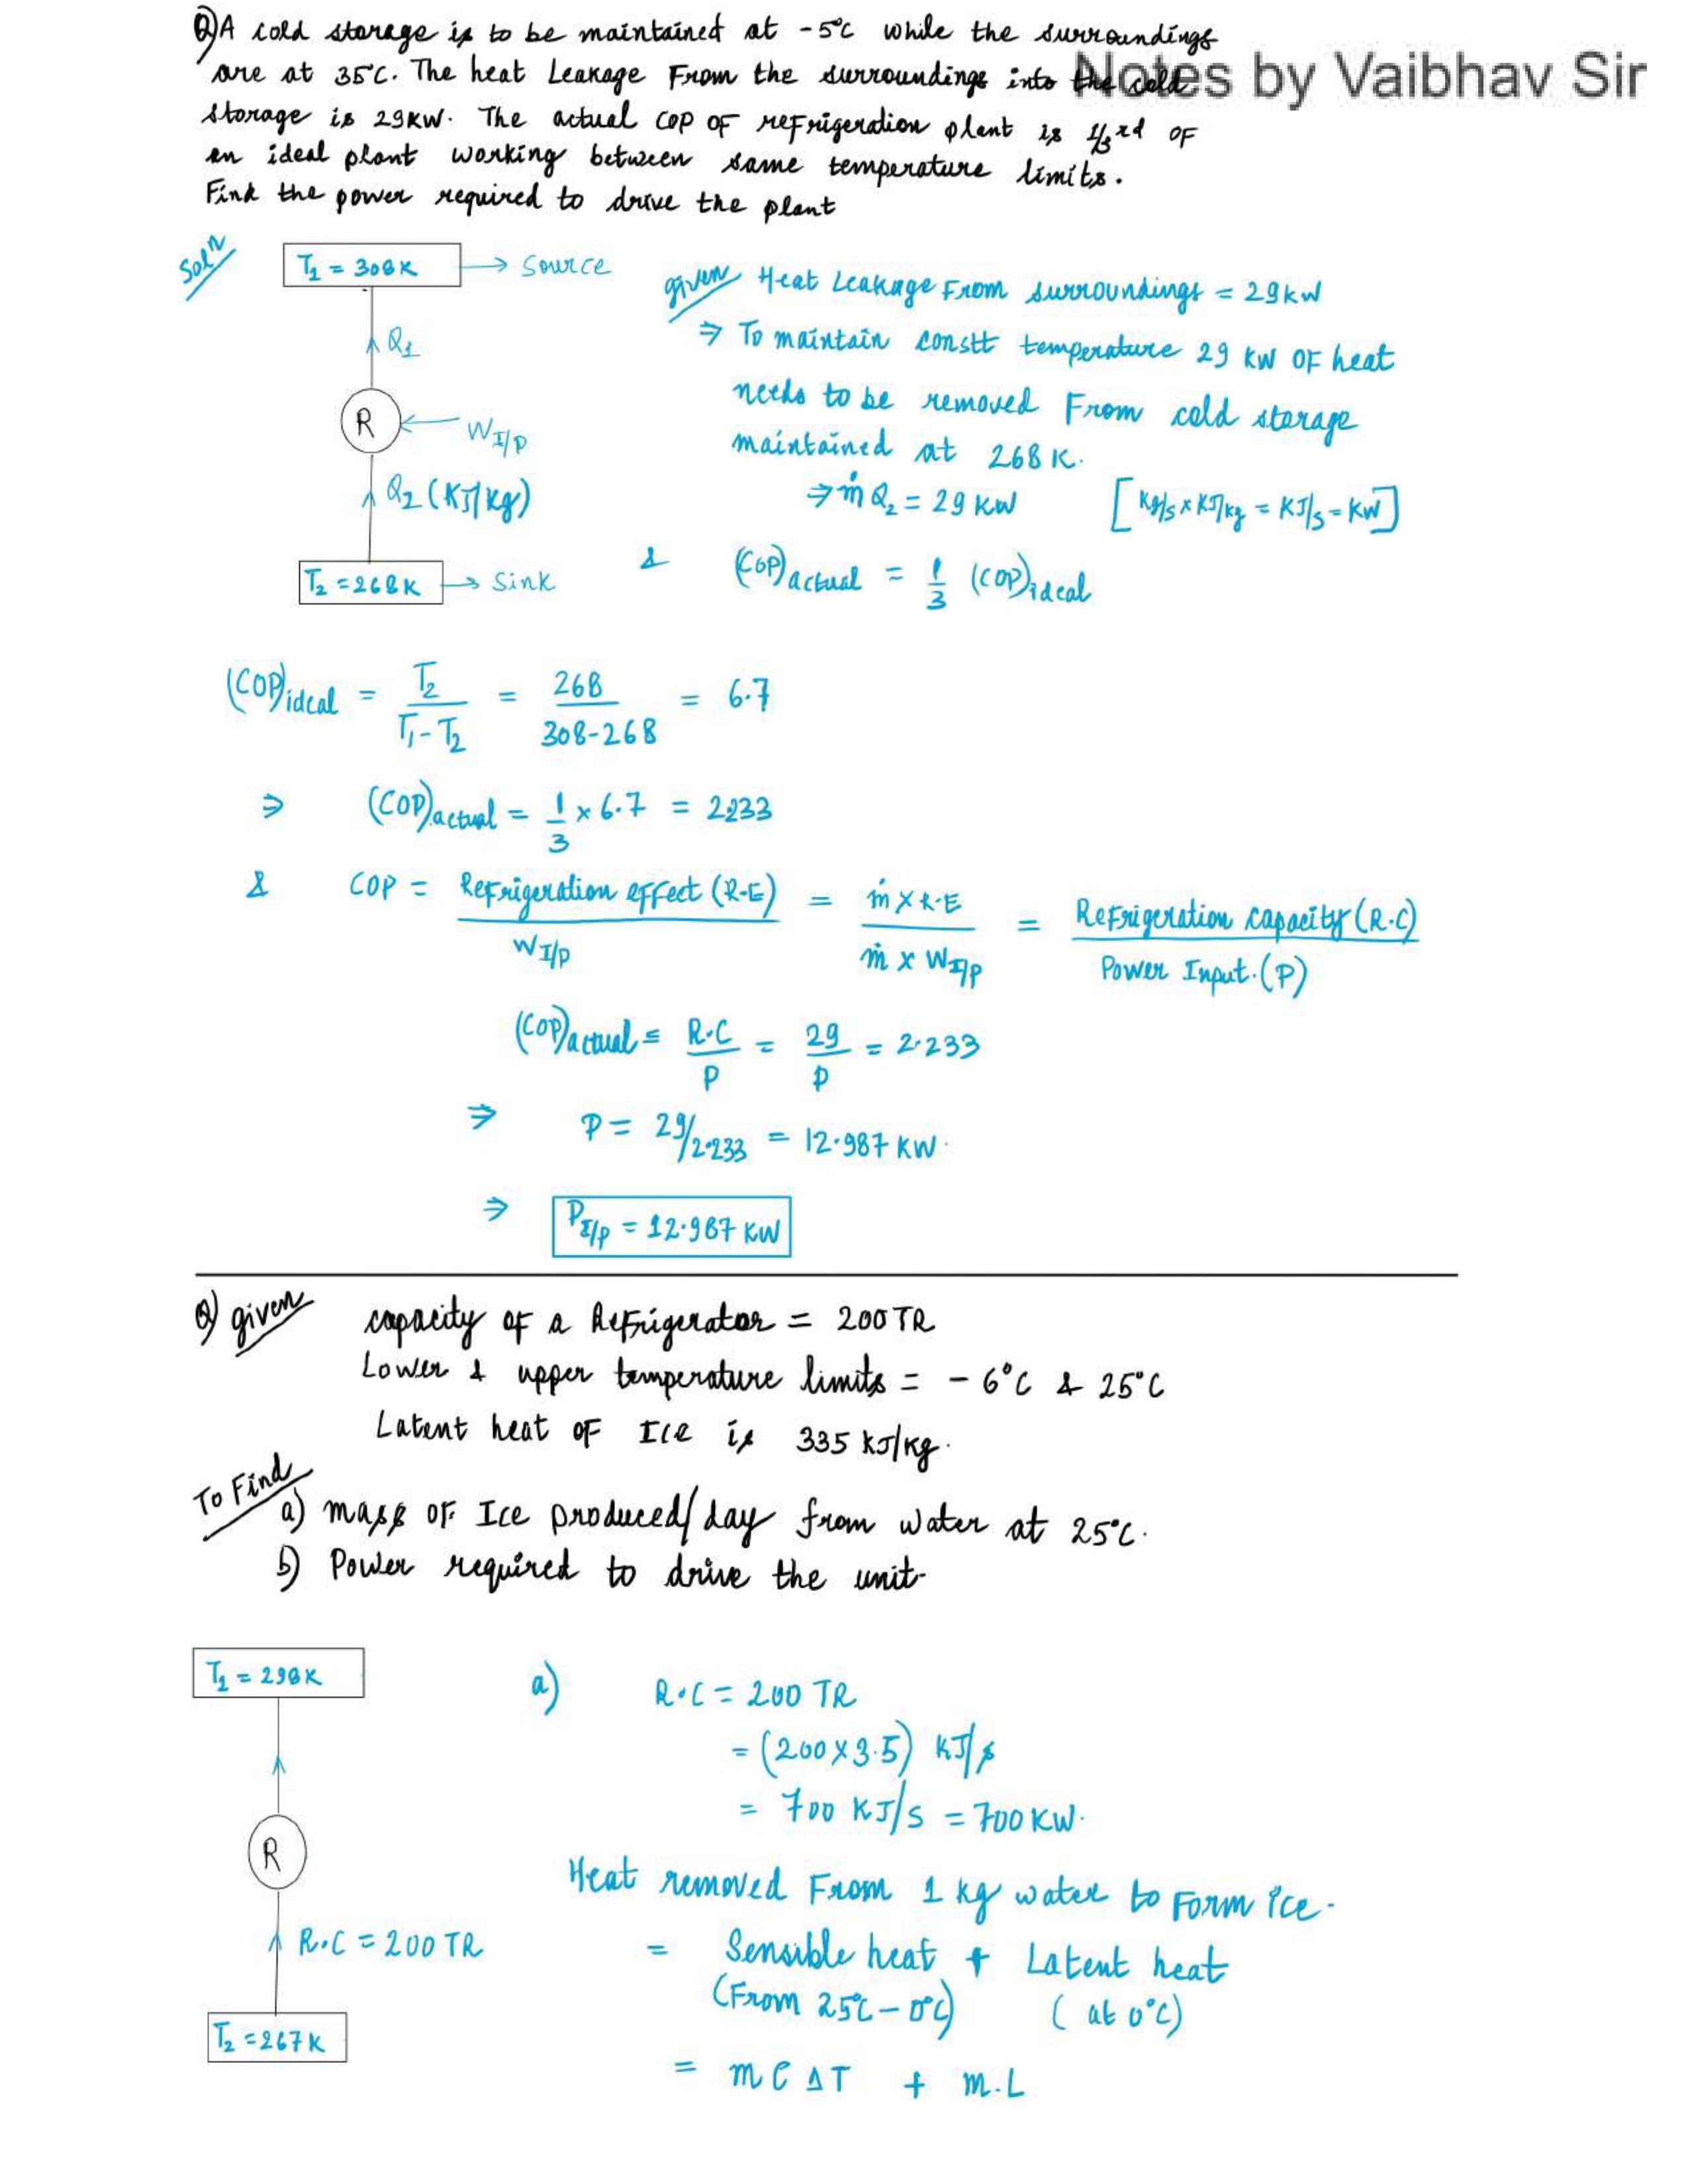 Q) A cold storage is to be maintained at -5°C while the surroundings
Notes by Vaibhav Sir
are at 35°C. The heat Leakage From the surroundings into the cold
storage is 29KW. The actual COP OF refrigeration plant is 1/3rd OF
an ideal plant working between same temperature limits.
Find the power required to drive the plant
Solⁿ
T1 = 308K → Source
given Heat Leakage From surroundings = 29kW
⇒ To maintain constt temperature 29 KW OF heat
Q1
needs to be removed From cold storage
R
W I/P
maintained at 268 K.
Q2 (KJ/Kg)
⇒ ṁ Q2 = 29 KW [Kg/s × KJ/kg = KJ/s = KW]
T2 = 268K → Sink
& (COP)actual = 1/3 (COP)ideal
(COP)ideal = T2/(T1-T2) = 268/(308-268) = 6.7
⇒ (COP)actual = 1/3 × 6.7 = 2.233
& COP = Refrigeration effect (R.E)/W I/P = ṁ × R.E/ṁ × W I/P = Refrigeration capacity (R.C)/Power Input.(P)
(COP)actual = R.C/P = 29/P = 2.233
⇒ P = 29/2.233 = 12.987 KW.
⇒ P I/P = 12.987 KW
Q) given capacity of a Refrigerator = 200 TR
Lower & upper temperature limits = - 6°C & 25°C
Latent heat of Ice is 335 KJ/Kg.
To Find
a) mass of Ice produced/day from water at 25°C.
b) Power required to drive the unit.
T1 = 298K
a) R.C = 200 TR
= (200×3.5) KJ/s
= 700 KJ/S = 700 KW.
R
Heat removed From 1 kg water to Form ice.
R.C = 200 TR
= Sensible heat + Latent heat
(From 25°C - 0°C) ( at 0°C)
T2 = 267K
= m C ΔT + m.L